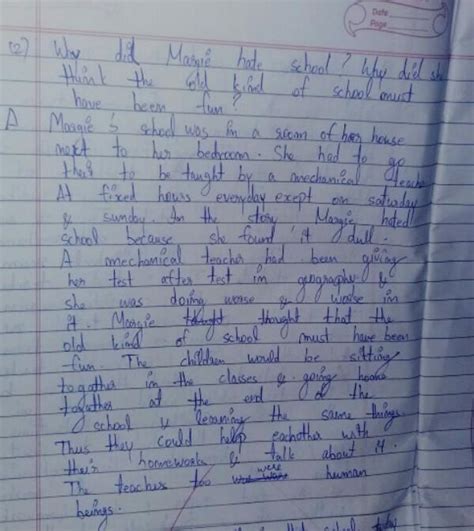 Date
Page
(2) Why did Margie hate school? Why did sh
think the old kind of school must
have been fun?
A Margie's school was in a room of her house
next to her bedroom. She had to go
their to be taught by a mechanical teache
At fixed hours everyday exept on satuday
& sunday. In the story Margie hated
school because she found it dull.
A mechanical teacher had been giving
her test after test in geography &
she was doing worse & worse in
it. Margie thought that the
old kind of school must have been
fun. The children would be sitting
together in the classes & going
together at the end of the
school & learning the same things.
Thus they could help eachother with
their homeworks & talk about it.
The teacher too were human
beings.